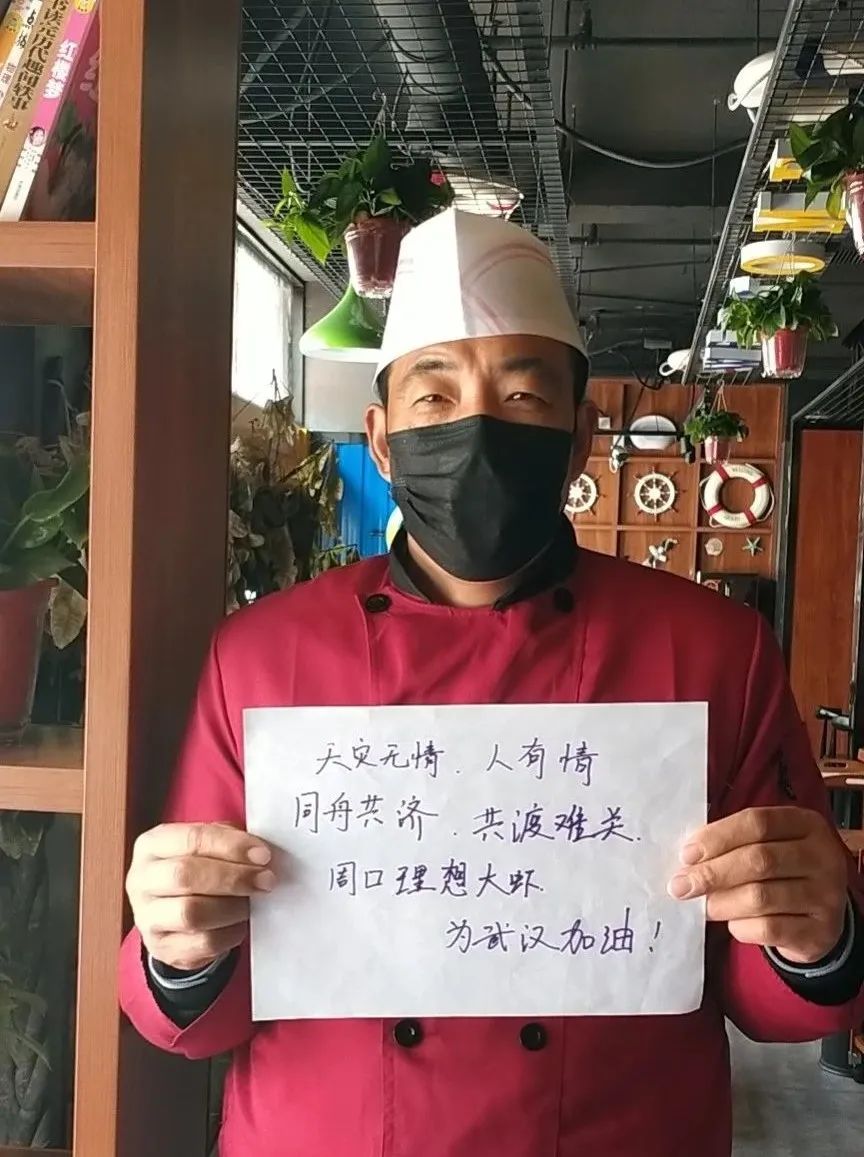 红楼梦
天灾无情.人有情
同舟共济.共渡难关.
周口理想大虾.
为武汉加油！